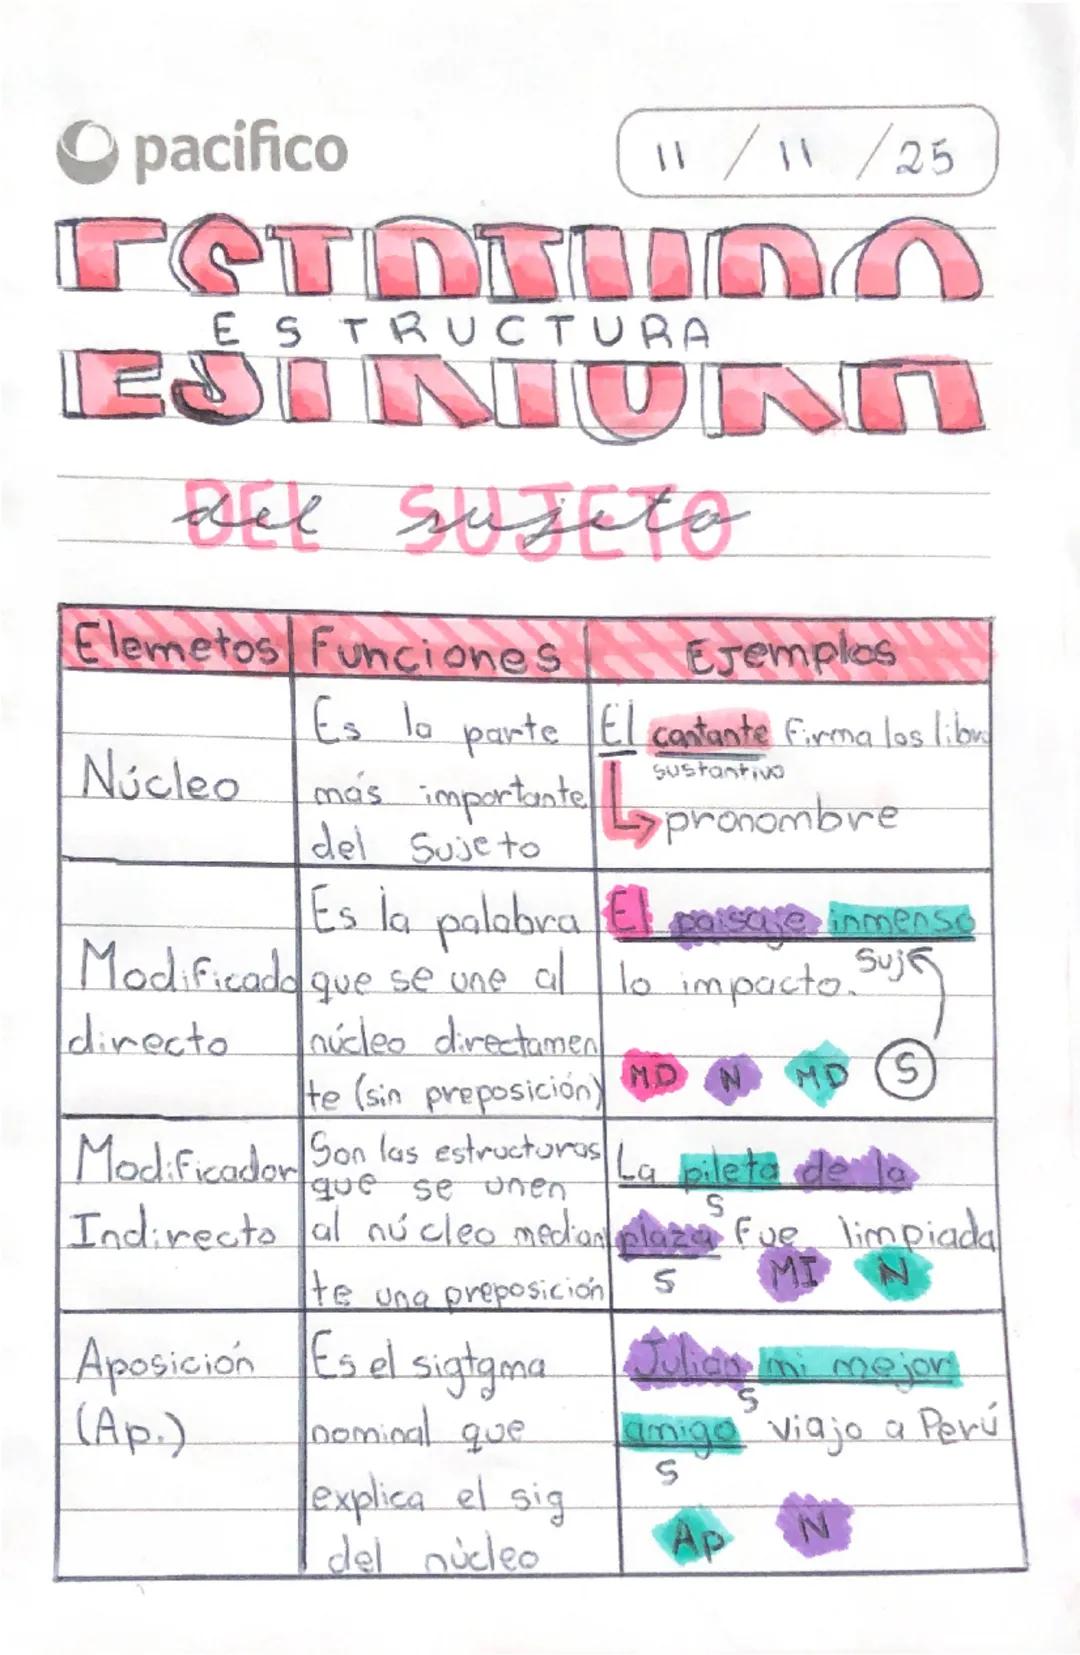 pacífico
11 / 11 / 25
ESTRTURA
ESTRUCTURA
DEL SUJETO
del sujeto
Elemetos Funciones Ejemplos
Núcleo
Es la parte
más importante
del Sujeto
El cantante firma los libro
sustantivo
pronombre
Modificado
directo
Es la palabra
que se une al
núcleo directamen
te (sin preposición)
El paisaje inmenso
lo impacto. Suj
MD N MD S
Modificador
Indirecto
Son las estructuras
que se unen
al núcleo median
te una preposición
La pileta de la
S
plaza fue limpiada
S MI N
Aposición
(Ap.)
Es el sigtgma
nominal que
explica el sig
del núcleo
Julian mi mejor
S
amigo viajo a Perú
S
Ap N